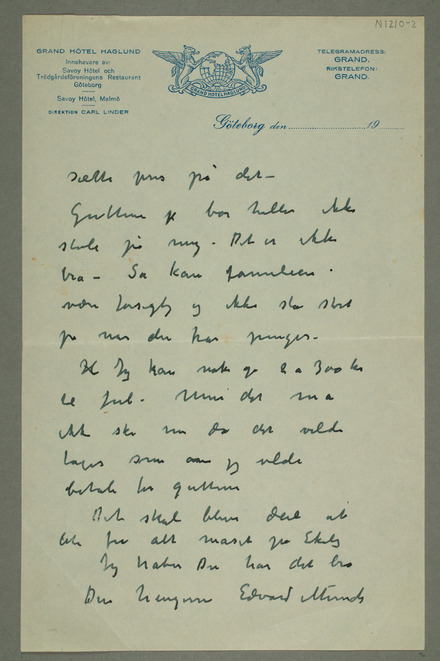 N1210-2
GRAND HÔTEL HAGLUND
Innehavare av:
Savoy Hôtel och
Trädgårdsföreningens Restaurant
Göteborg
Savoy Hôtel, Malmö
DIREKTION CARL LINDER
GRAND HÔTEL HAGLUND
TELEGRAMADRESS:
GRAND.
RIKSTELEFON:
GRAND.
Göteborg den 19
sætte pris på det –
Guttene bør heller ikke
stole på mig. Det er ikke
bra – Så kan familien
være forsigtig og ikke slå stort
på når du har penger –
Jeg kan nok gi 300 kr
til jul. Men det må
ikke ske nu da det vilde
tages som om jeg vilde
betale for guttene
Det skal blive deil at
for alt maset på Ekely
Jeg håber Du har det bra
Din hengivne Edvard Munch